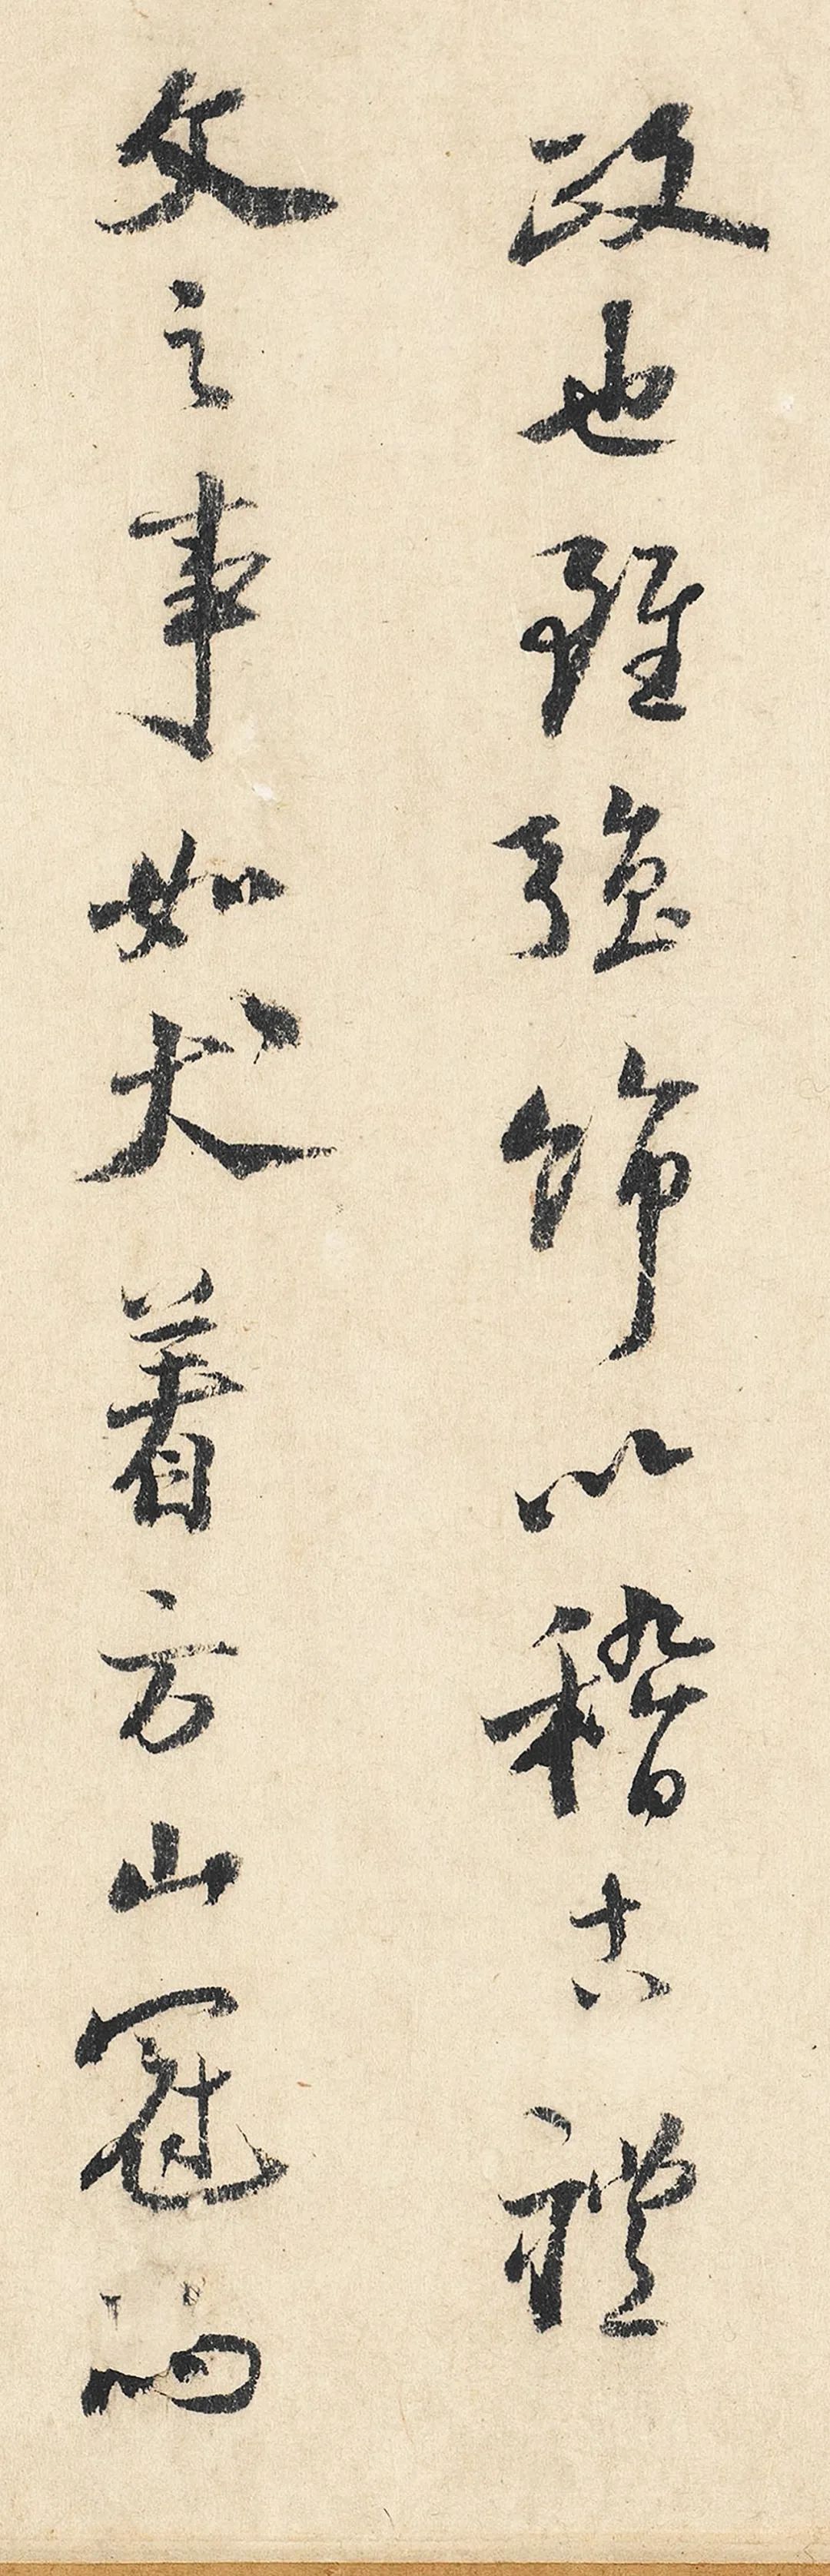 政也雖強飾以稽古禮
文之事如犬着方山冠